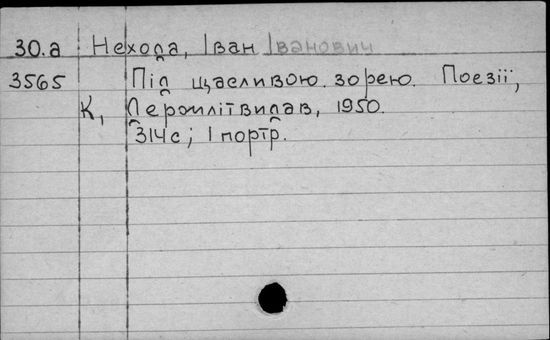 30.а Нехода, Іван Іванович
3565 Під щасливою зорею. Поезії,
К, Держлітвидав, 1950.
314с; 1 портр.